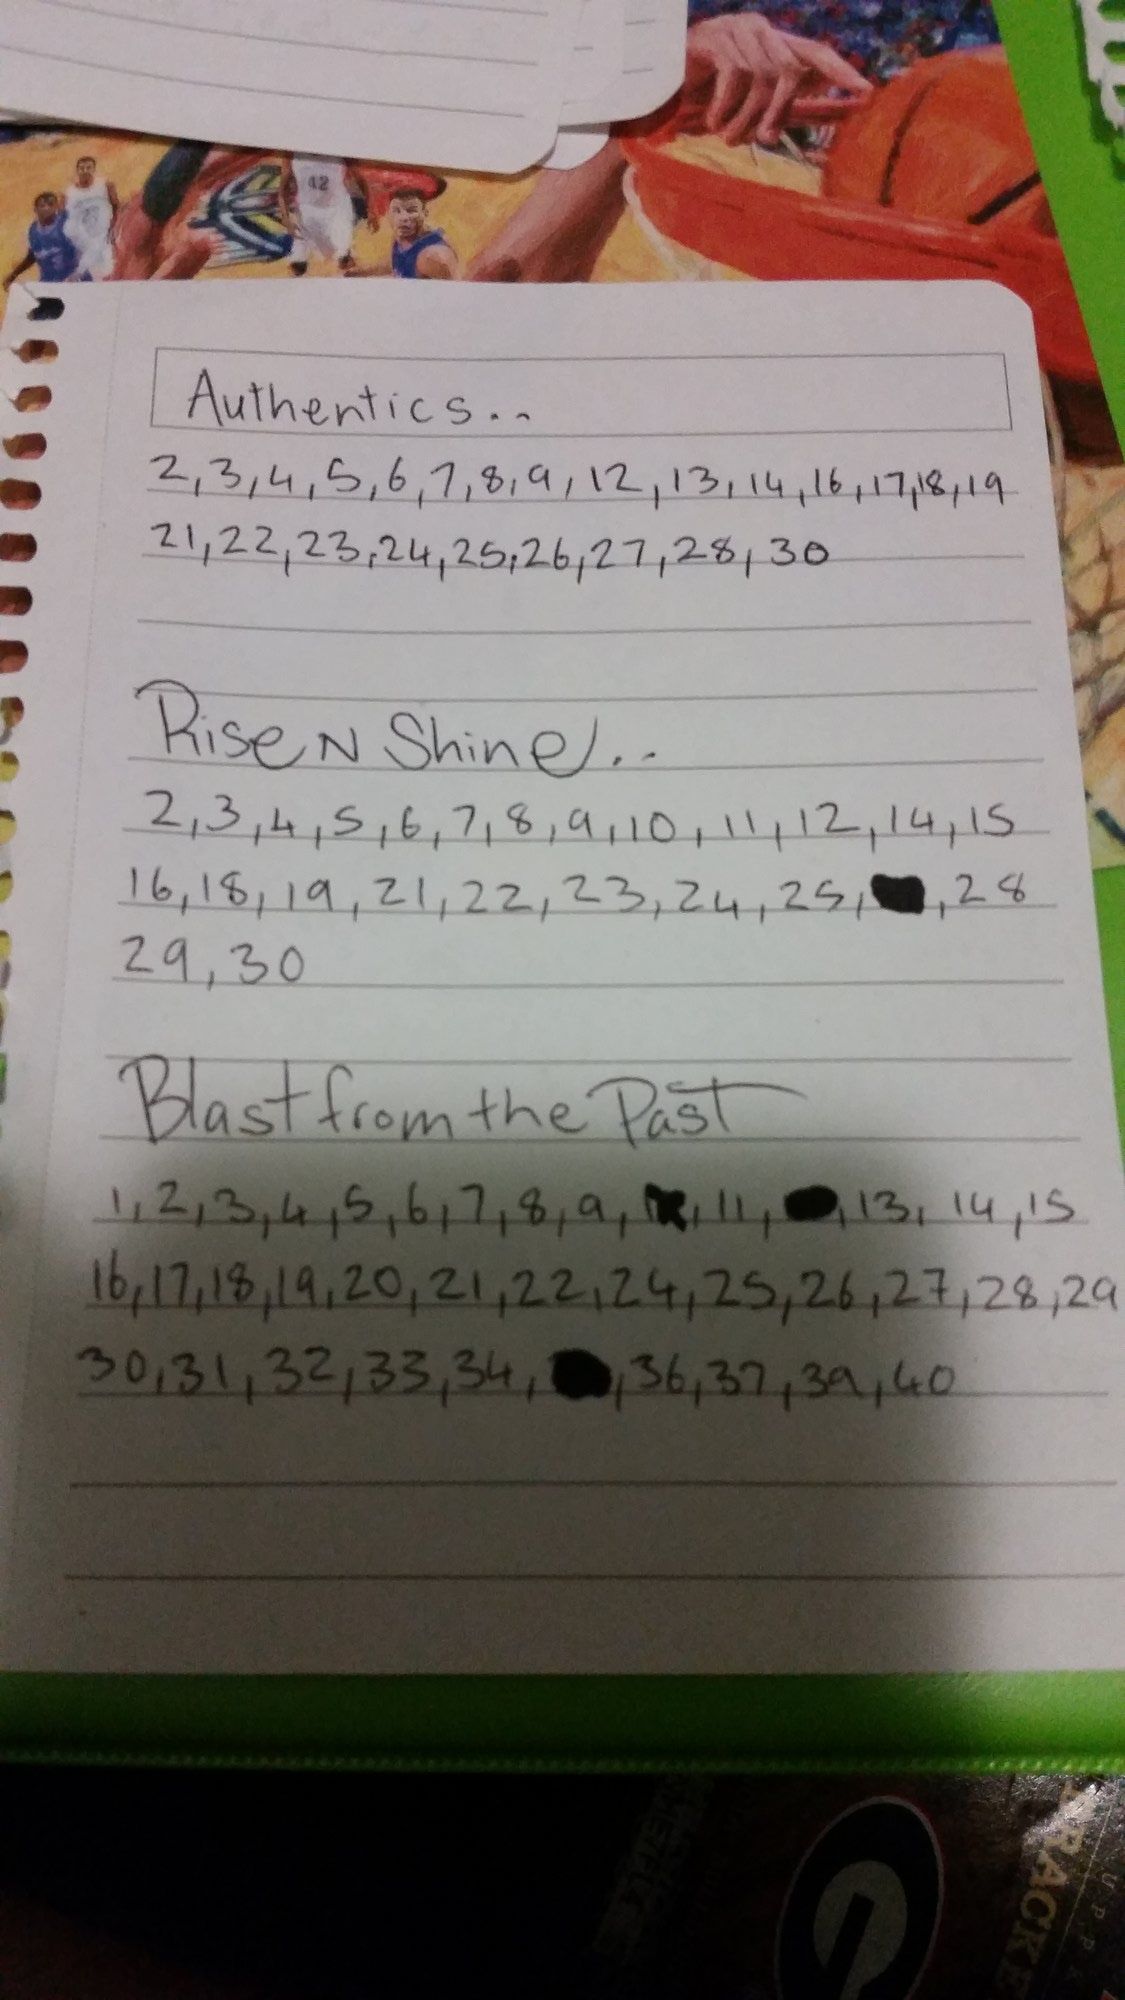 42
Authentics...
2,3,4,5,6,7,8,9,12,13,14,16,17,18,19
21,22,23,24,25,26,27,28,30
Rise N Shine...
2,3,4,5,6,7,8,9,10,11,12,14,15
16,18,19,21,22,23,24,25,  ,28
29,30
Blast from the Past
1,2,3,4,5,6,7,8,9,  ,11,  ,13,14,15
16,17,18,19,20,21,22,24,25,26,27,28,29
30,31,32,33,34,  ,36,37,39,40
G